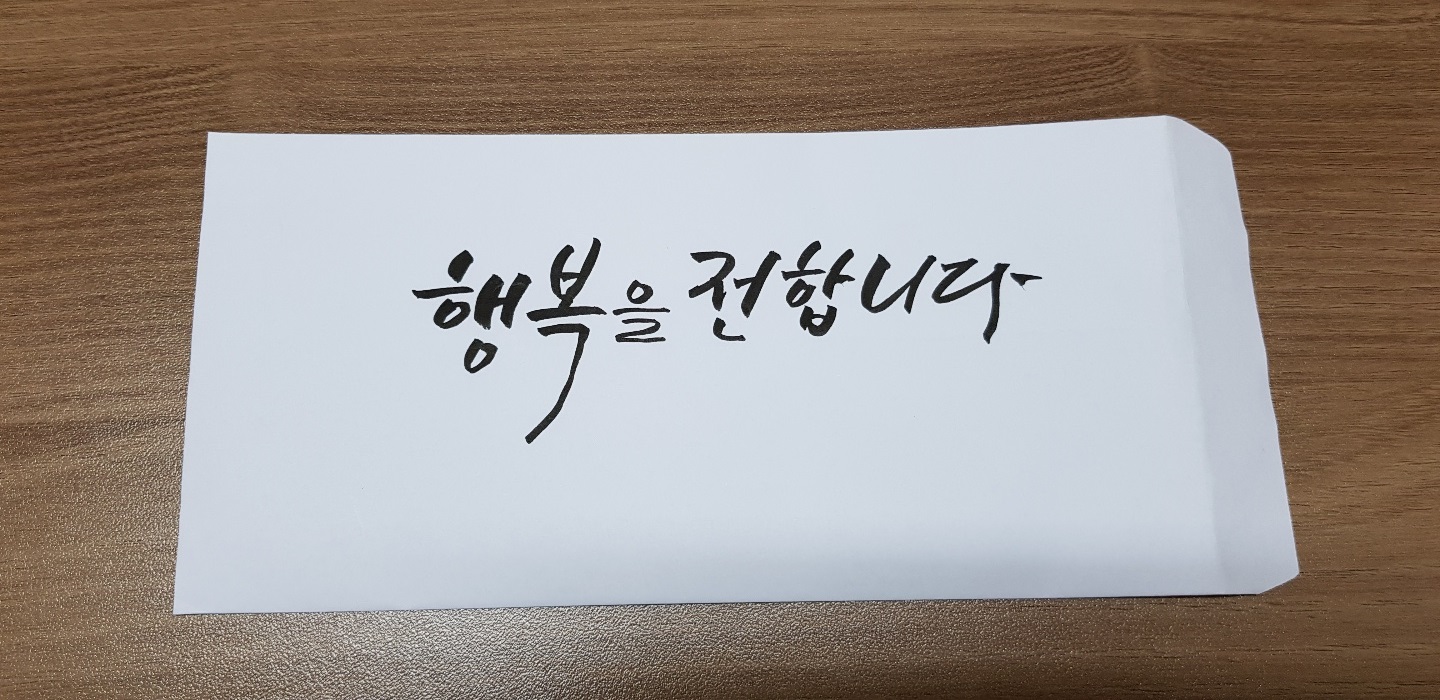 행복을 전합니다